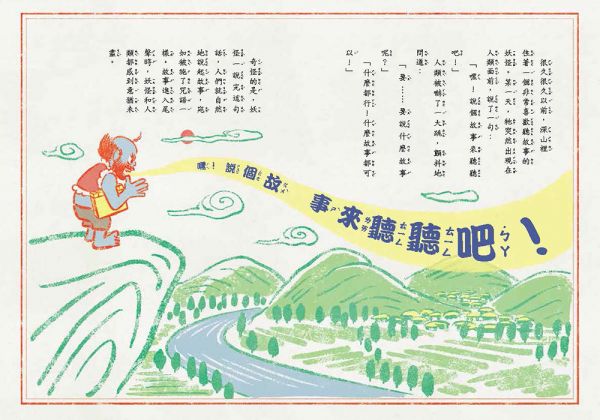 很久很久以前，深山裡
住著一個非常喜歡聽故事的
妖怪。第一天，牠突然出現在
人類面前，說了一句：
「嘿！說個故事來聽聽
吧！」
人類被嚇了一大跳，顫抖地
問道：
「要……要說什麼故事
呢？」
「什麼都行！什麼故事都可
以！」
奇怪的是，妖
怪一說完這句
話，人們就自然
地說起故事，宛
如被施了咒語一
樣。故事進入尾
聲時，妖怪和人
類都感到意猶未
盡。
嘿！說個故事來聽聽吧！